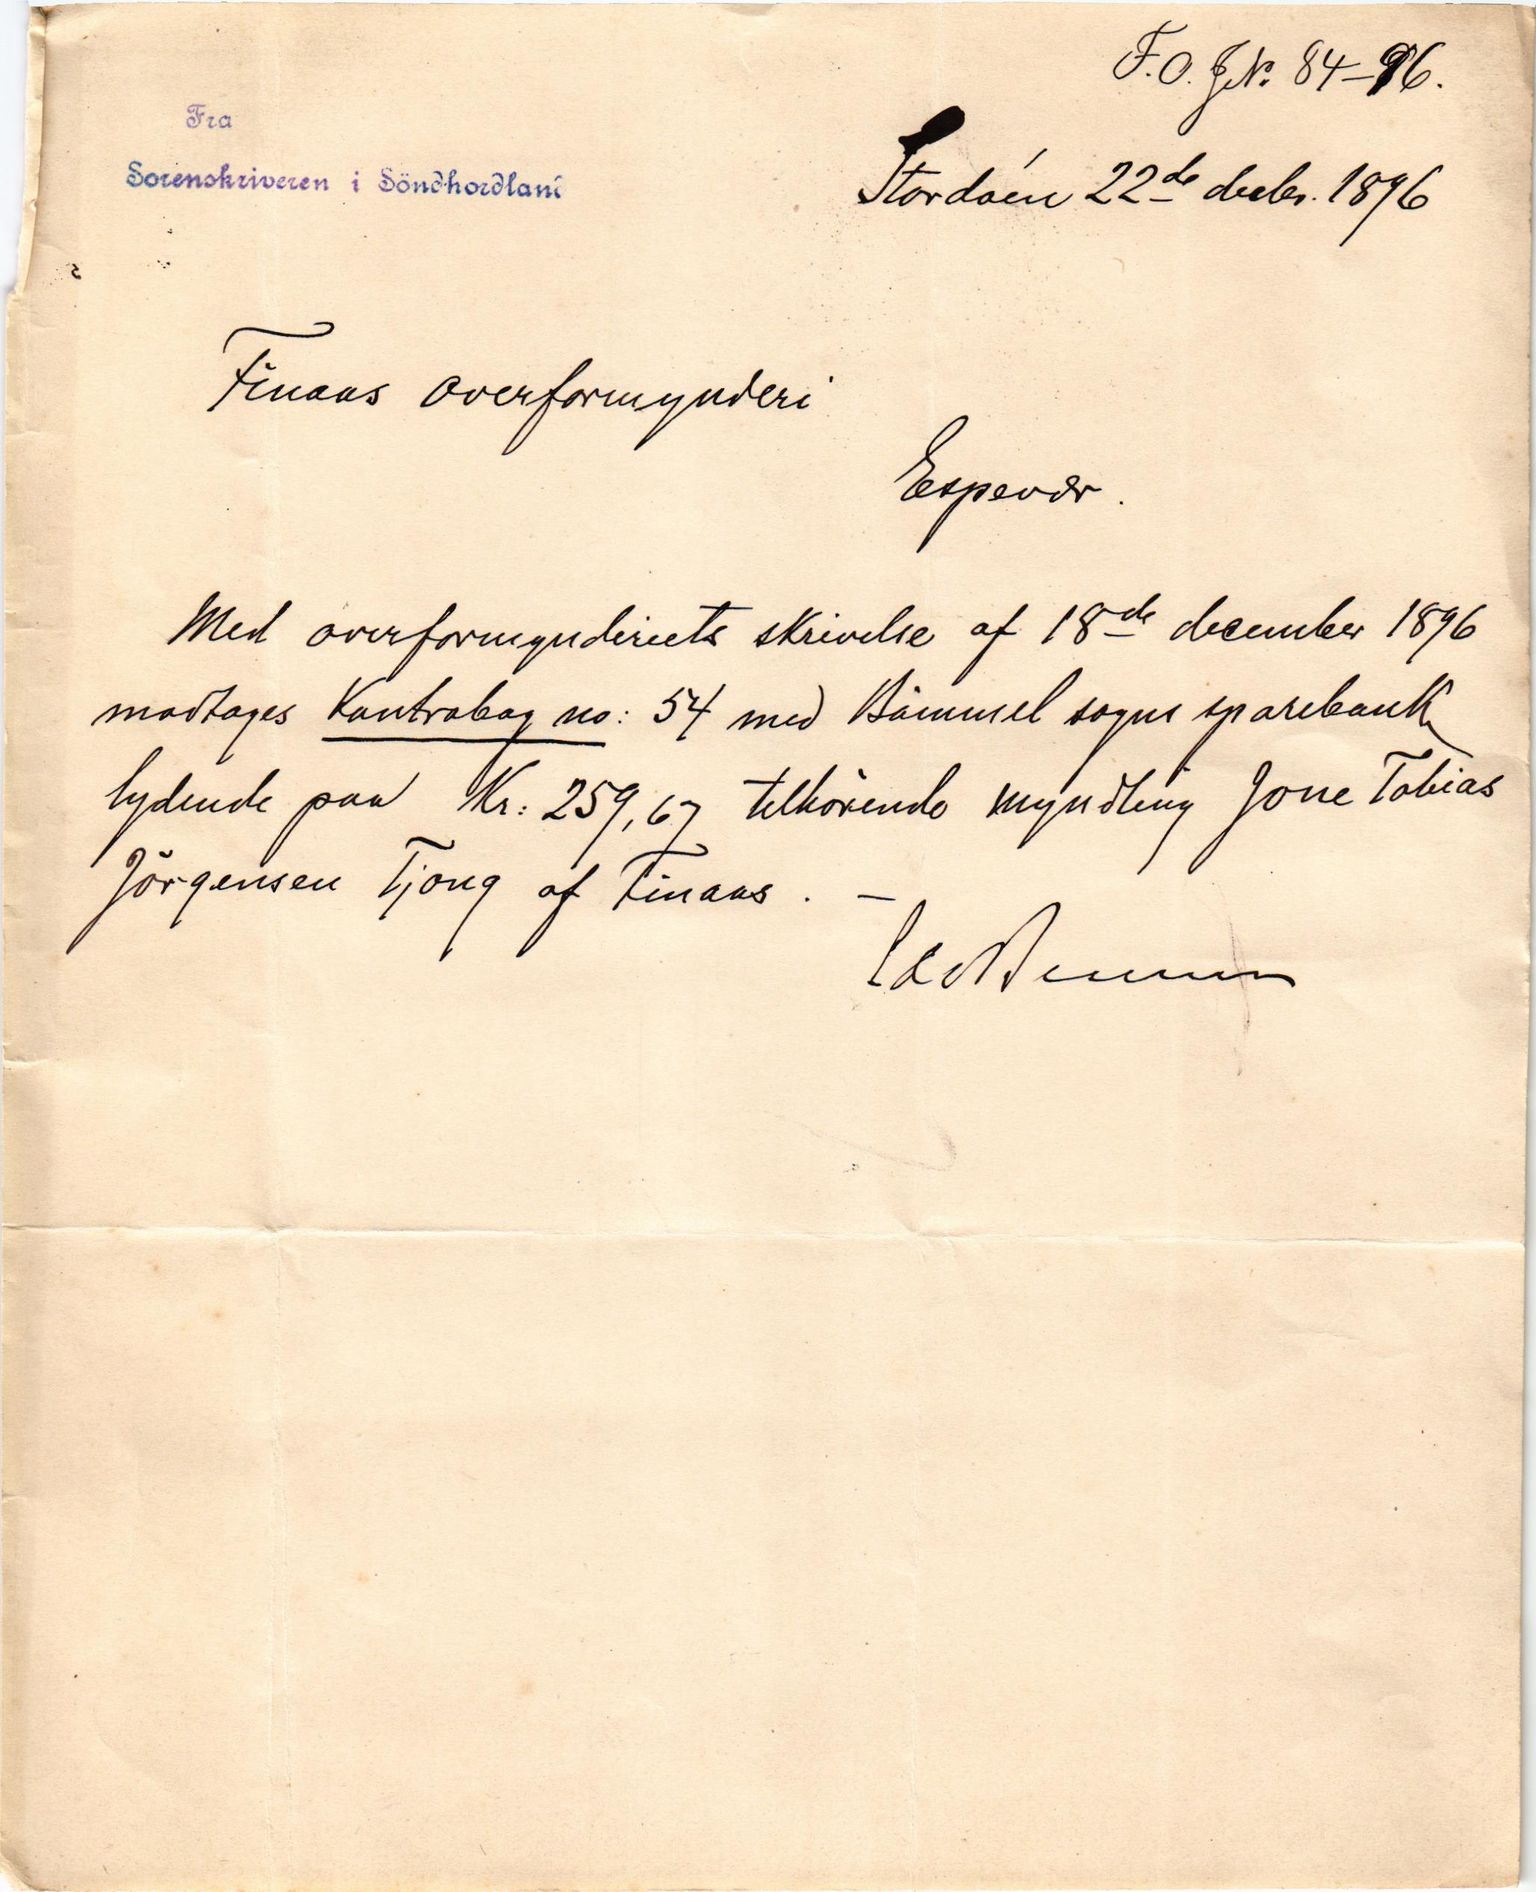 F.O. J.No. 84-96.
Fra
Sorenskriveren i Söndhordland
Stordöen 22de decbr. 1896
Finaas overformynderi
Espevær.
Med overformynderiets skrivelse af 18de december 1896
modtages Kontrabog no: 54 med Bömmel sogns sparebank
lydende paa Kr: 259,67 tilhörende myndling Jone Tobias
Jörgensen Tjong af Finaas. —